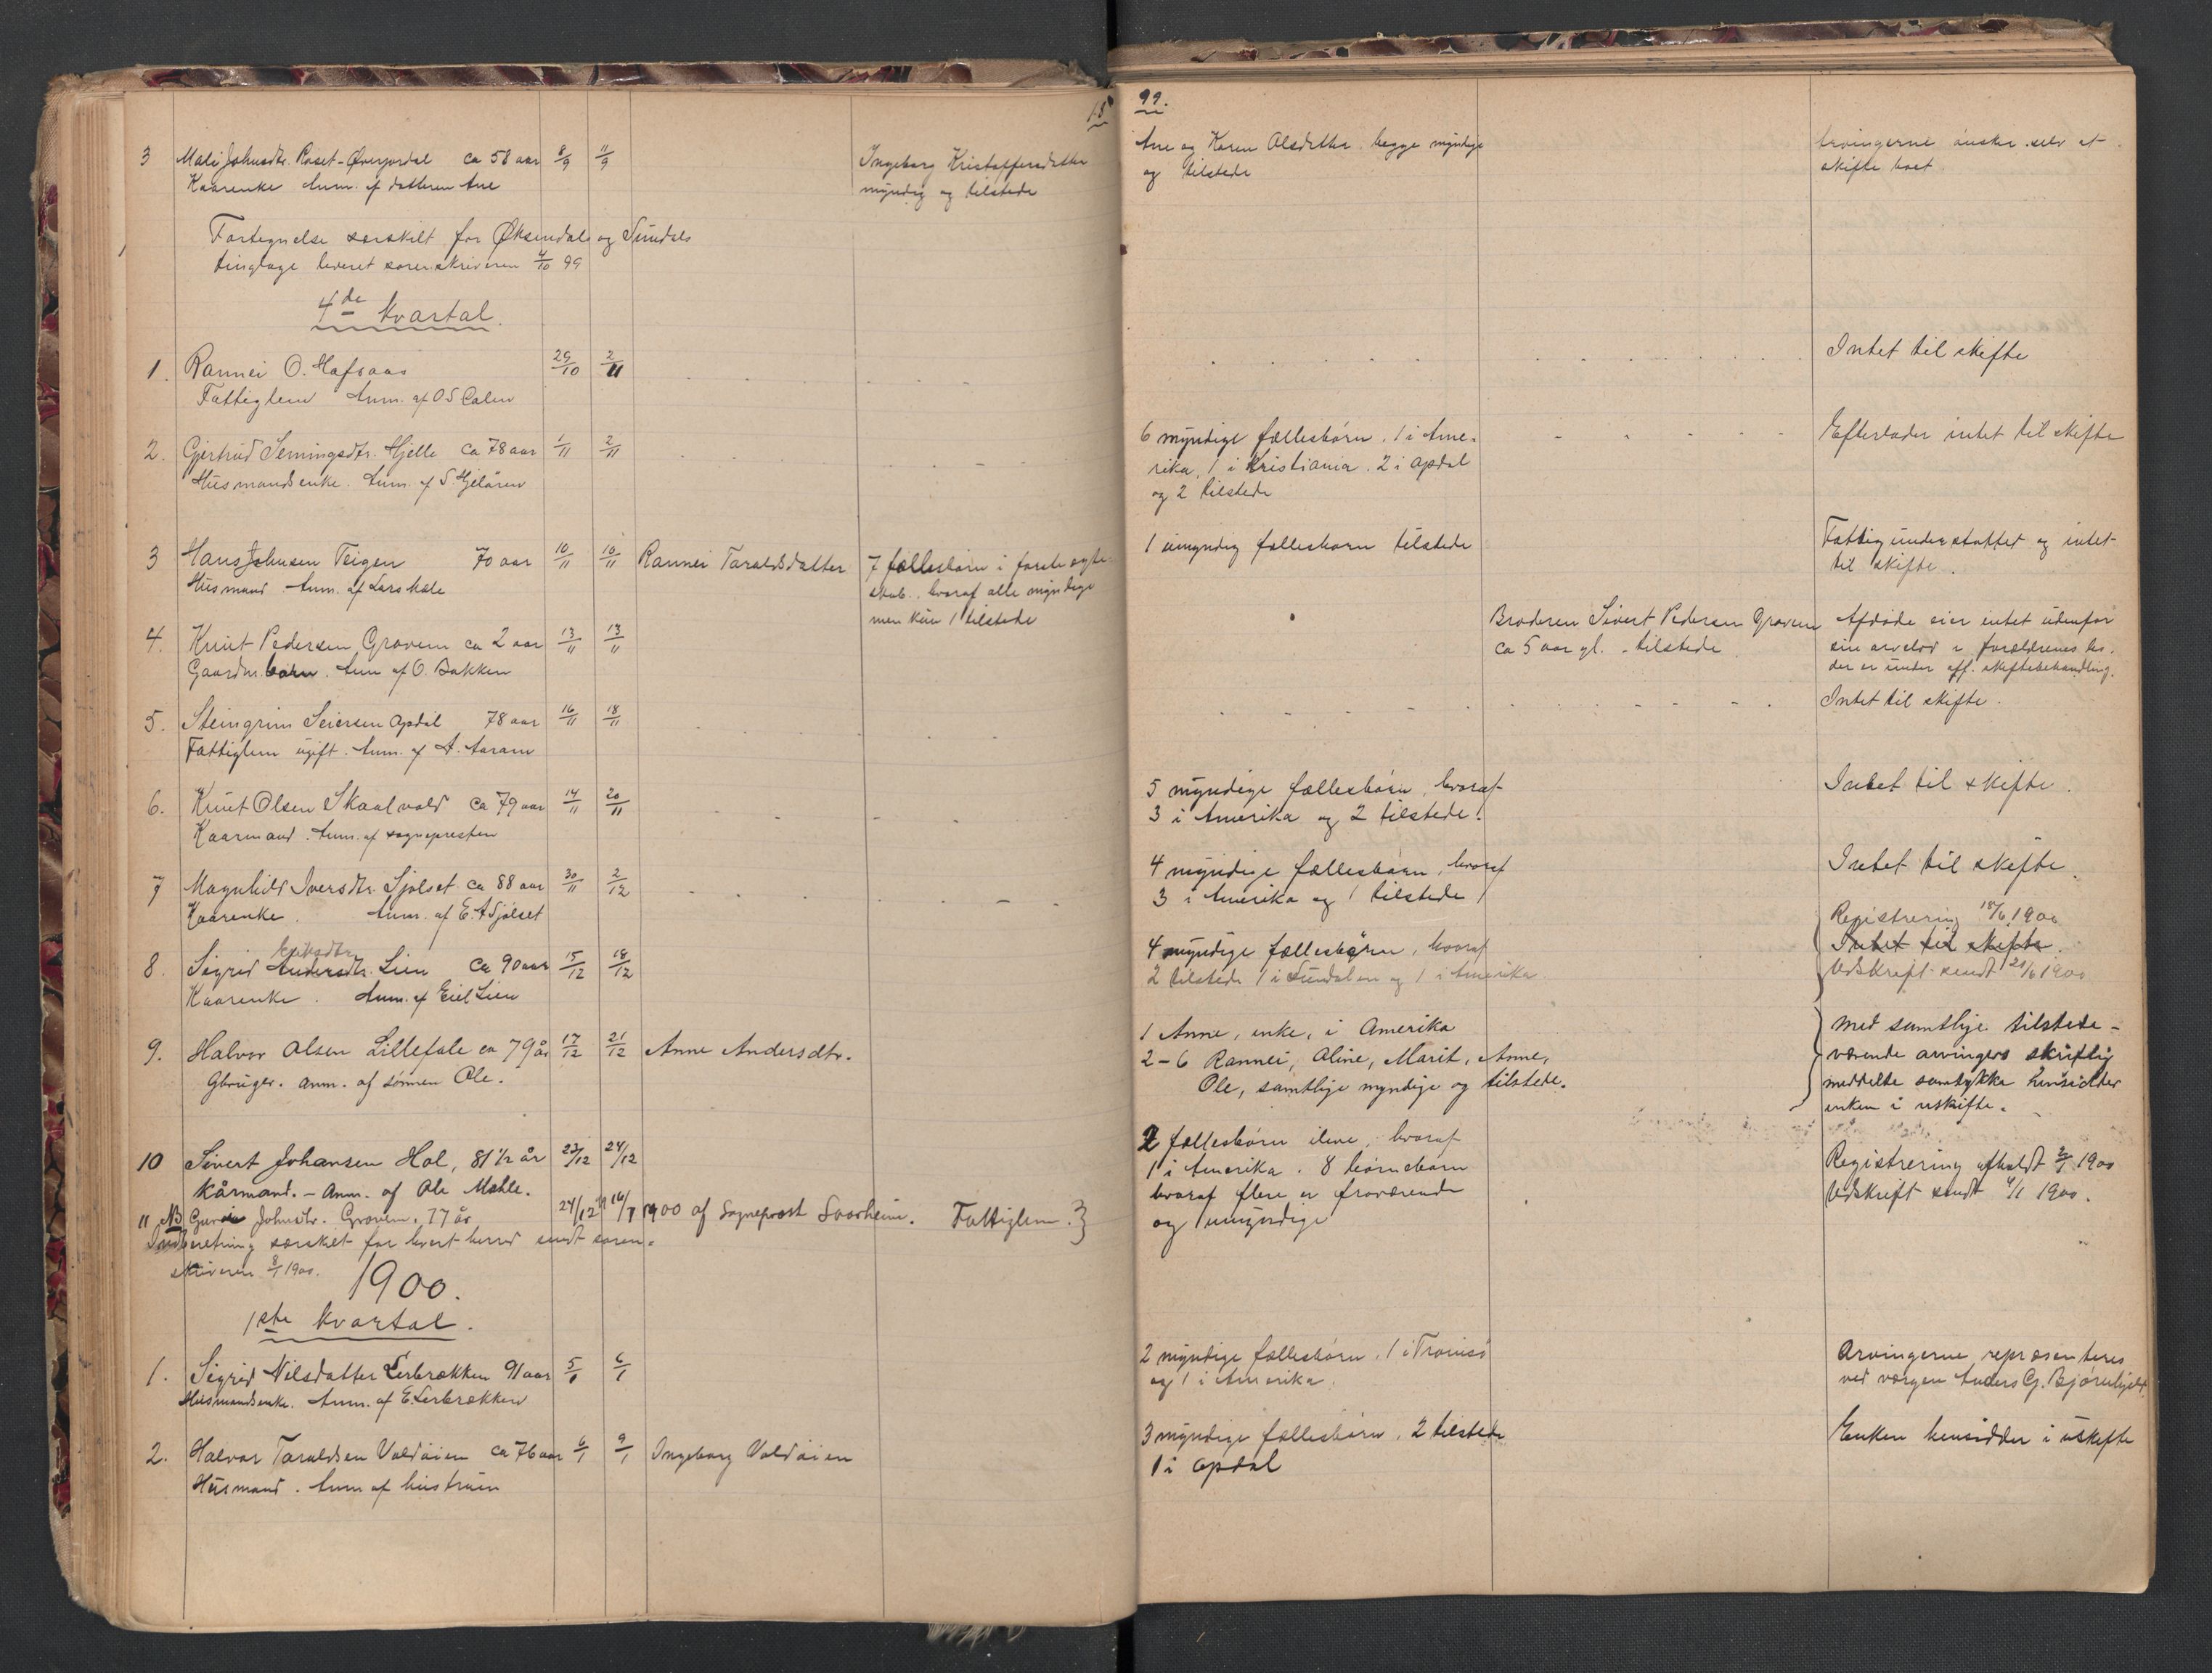 18
99.
3 Mali Johnsdtr. Roset-Øverjordal ca 58 aar 8/9 11/9 Ingeborg Kristoffersdatter
Kaarenke Anm. af datteren Ane myndig og tilstede
Ane og Karen Olsdatter begge myndige
og tilstede
Arvingerne ønsker selv at
skifte boet.
Fortegnelse særskilt for Øksendals og Sundals
tinglage leveret sorenskriveren 4/10 99
4de Kvartal.
1. Rannei O. Hafsaas 29/10 2/11 Intet til skifte
Fattiglem Anm. af O S Calen
2. Gjertrud Semingsdtr. Hjelle ca 78 aar 1/11 2/11
Husmandsenke. Anm. af S.
6 myndige fællesbørn. 1 i Ame-
rika, 1 i Kristiania. 2 i Opdal
og 2 tilstede
Efterlader intet til skifte
3 Hans Johnsen Teigen 70 aar 10/11 10/11 Rannei Taraldsdatter 7 fællesbørn i første ægte-
Husmand. Anm. af Lars Hale skab, hvoraf alle myndige
men kun 1 tilstede
1 umyndig fællesbarn tilstede
Fattigunderstøttet og intet
til skifte.
4. Knut Pedersen Gravem ca 2 aar 13/11 13/11
Gaardm. barn. Anm af O. Bakken
Broderen Sivert Pedersen Gravem
ca 5 aar gl. - tilstede
Afdøde eier intet udenfor
sin arvelod i forældrenes bo,
der er under off. skiftebehandling.
5. Steingrim Seiersen Opdal 78 aar 16/11 18/11 Intet til skifte.
Fattiglem ugift. Anm. af A. Aaram
6. Knut Olsen Skaalvold ca 79 aar 14/11 20/11
Kaarmand. Anm. af sognepresten
5 myndige fællesbørn, hvoraf
3 i Amerika og 2 tilstede.
Intet til skifte.
7 Magnhild Iversdtr. Sjølset ca 88 aar 30/11 2/12
Kaarenke. Anm. af E. A Sjølset
4 myndige fællesbørn, hvoraf
3 i Amerika og 1 tilstede
Intet til skifte.
8. Sigrid Andersdtr. Lien ca 90 aar 15/12 18/12
Kaarenke. Anm. af Eiel Lien
4 myndige fællesbørn, hvoraf
2 tilstede 1 i Sundalen og 1 i Amerika
Registrering 18/6 1900
Intet til skifte.
Udskrift sendt 20/6 1900
9. Halvor Olsen Lillefale ca 79 år 17/12 21/12 Anne Andersdtr.
Gbruger. anm. af sønnen Ole.
1 Anne, enke, i Amerika
2-6 Rannei, Aline, Marit, Anne,
Ole, samtlige myndige og tilstede.
Med samtlige tilstede-
værende arvingers skriftlig
meddelte samtykke hensidder
enken i uskifte.
10 Sivert Johansen Hol, 81 1/2 år 23/12 24/12
Kårmand. - Anm. af Ole Mæhle.
2 fællesbørn ilive, hvoraf
1 i Amerika. 8 børnebørn
hvoraf flere er fraværende
og umyndige
Registrering afholdt 2/1 1900
Udskrift sendt 4/1 1900.
11 NB Guroi Johnsdtr. Gravem. 77 år 24/12 16/7 1900 af Sogneprost Svorheim. Fattiglem.
Indberetning særskilt for hvert herred sendt soren-
skriveren 8/1 1900.
1900.
1ste Kvartal.
1. Sigrid Nilsdatter Lerbrækken 91 aar 5/1 6/1
Husmandsenke. Anm. af E. Lerbrækken
2 myndige fællesbørn. 1 i Tromsø
og 1 i Amerika.
Arvingerne repræsenteres
ved værgen Anders G. Bjørnhjell.
2. Halvor Taraldsen Valdøien ca 76 aar 6/1 9/1 Ingeborg Valdøien
Husmand. Anm af hustruen
3 myndige fællesbørn. 2 tilstede
1 i Opdal
Enken hensidder i uskifte